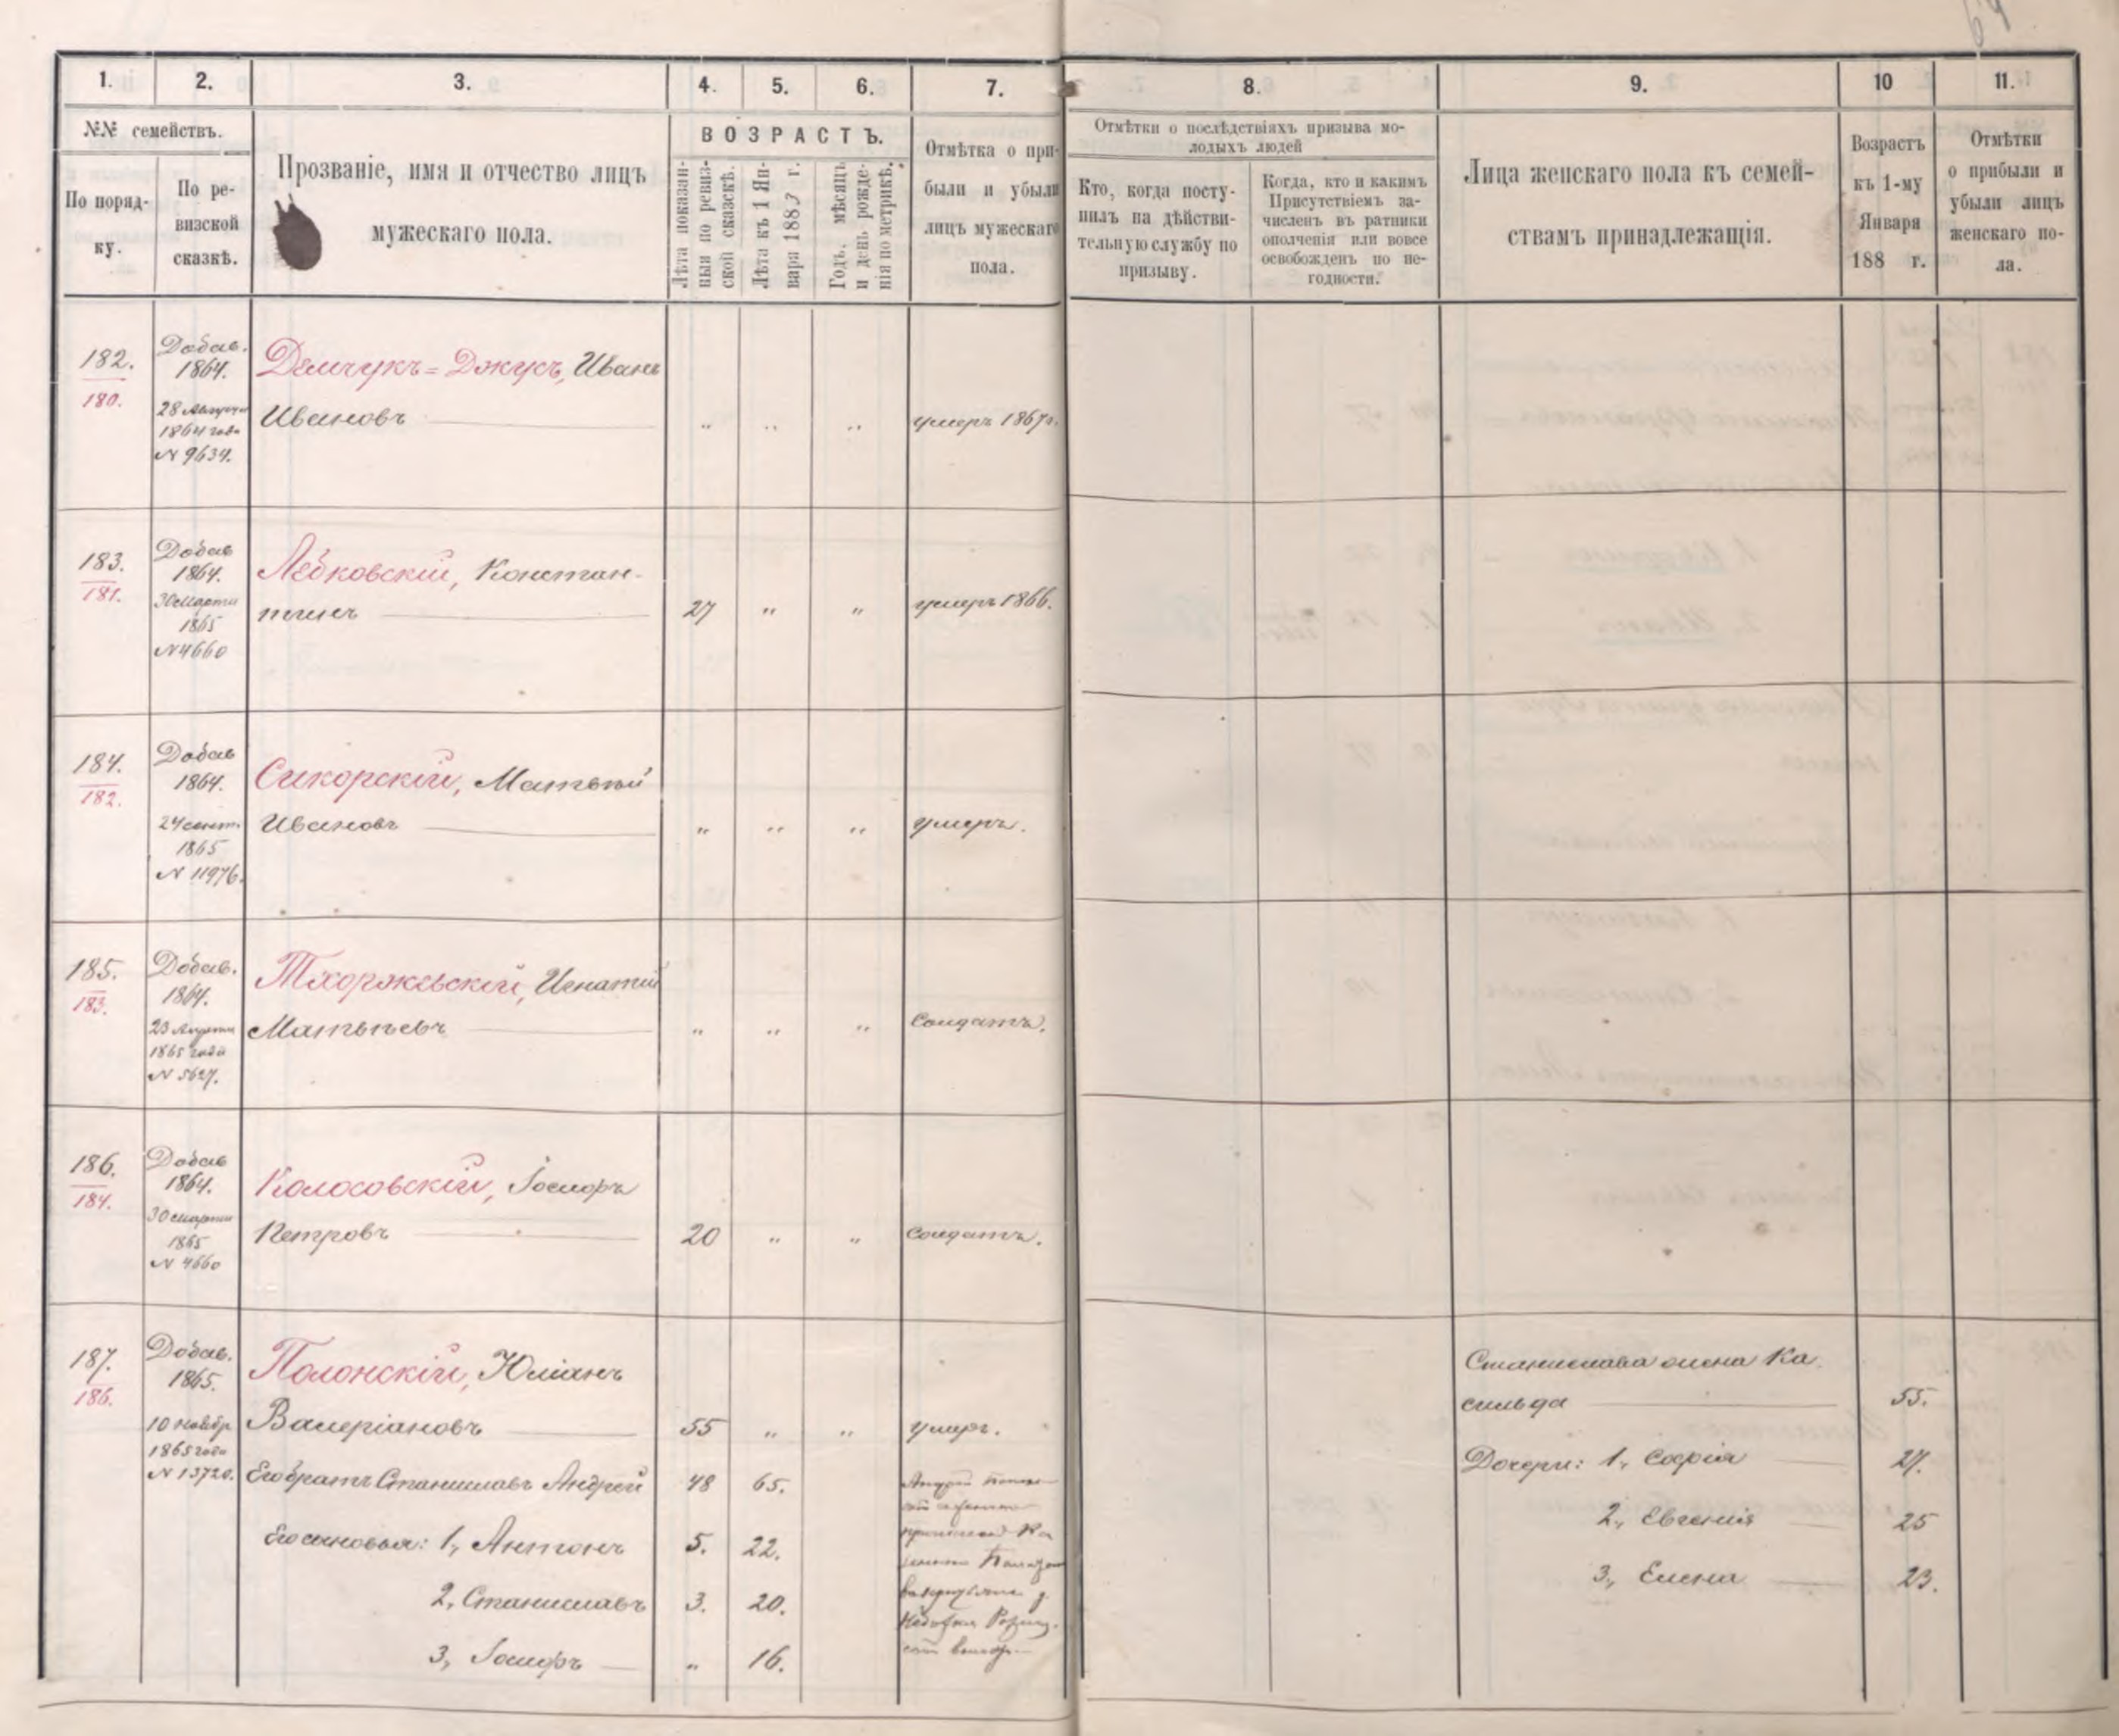 64
1. 2. 3. 4. 5. 6. 7. 8. 9. 10 11.
№№ семействъ.
По поряд-
ку.
По ре-
визской
сказкѣ.
Прозваніе, имя и отчество лицъ
мужескаго пола.
ВОЗРАСТЪ.
Лѣта показан-
ныя по ревиз-
ской сказскѣ.
Лѣта къ 1 Ян-
варя 1883 г.
Годъ, мѣсяцъ
и день рожде-
нія по метрикѣ.
Отмѣтка о при-
были и убыли
лицъ мужескаго
пола.
Отмѣтки о послѣдствіяхъ призыва мо-
лодыхъ людей
Кто, когда посту-
пилъ на дѣйстви-
тельную службу по
призыву.
Когда, кто и какимъ
Присутствіемъ за-
численъ въ ратники
ополченія или вовсе
освобожденъ по не-
годности.
Лица женскаго пола къ семей-
ствамъ принадлежащія.
Возрастъ
къ 1-му
Января
188 г.
Отмѣтки
о прибыли и
убыли лицъ
женскаго по-
ла.
182.
180.
Добав.
1864.
28 Августа
1864 года
N 9634.
Демчукъ=Джукъ, Иванъ
Ивановъ " " " умеръ 1867г.
183.
181.
Добав
1864.
30 Марта
1865
N 4660
Лебковскій, Констан-
тинъ 27 " " умеръ 1866.
184.
182.
Добав
1864.
24 сент.
1865
N 11976.
Сикорскій, Матвѣй
Ивановъ " " " умеръ.
185.
183.
Добав.
1864.
23 Апрѣля
1865 года
N 5627.
Тхоржевскій, Игнатій
Матвѣевъ " " " Солдатъ.
186.
184.
Добав
1864.
30 Марта
1865
N 4660
Колосовскій, Іосифъ
Петровъ 20 " " Солдатъ.
187.
186.
Добав.
1865.
10 Ноябр
1865 года
N 13720.
Полонскій, Юліанъ
Валеріановъ 55 " " умеръ.
Его братъ Станиславъ Андрей 48 65.
Его сыновья: 1, Антонъ 5. 22.
2, Станиславъ 3. 20.
3, Іосифъ " 16.
Андрей
Станислава жена Ка
сильда 55.
Дочери: 1, Софія 27.
2, Евгенія 25
3, Елена 23.